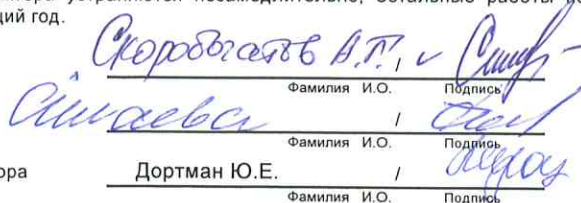 устраняются незамедлительно, остальные работы
щий год.
Скоробогатов А.Г. /
Фамилия И.О. Подпись
/
Фамилия И.О. Подпись
ора Дортман Ю.Е. /
Фамилия И.О. Подпись